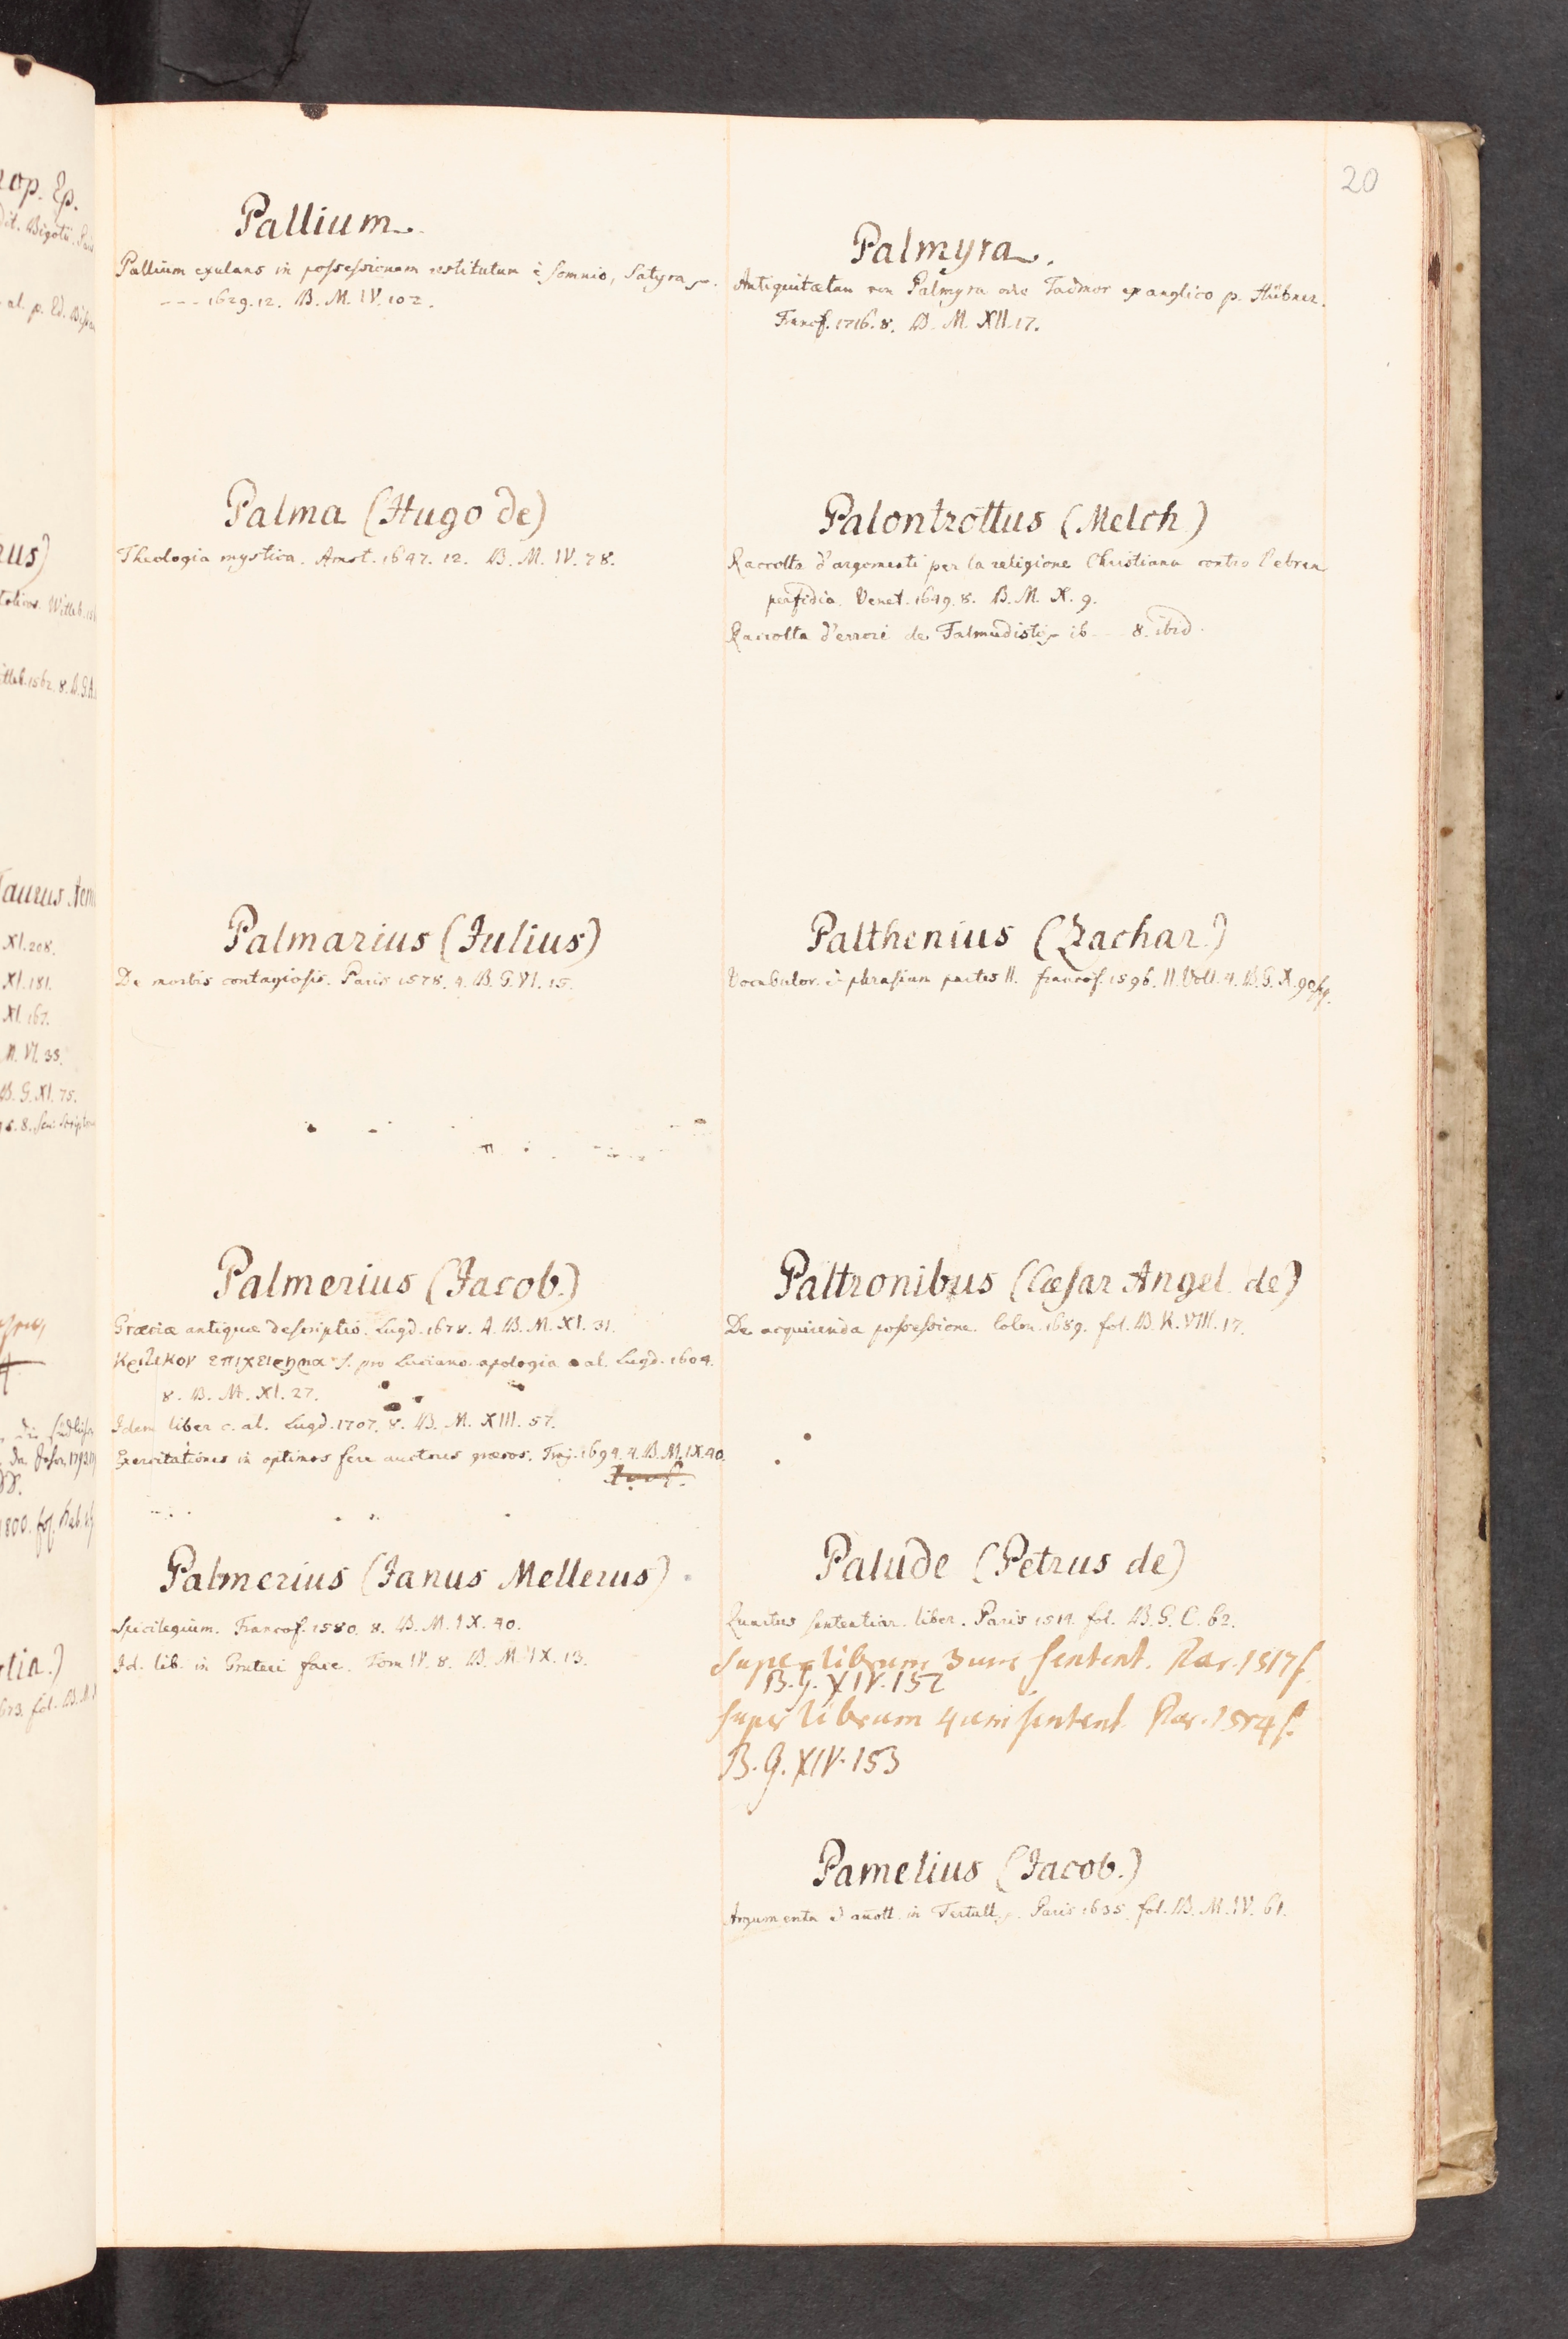 20
Pallium.
Pallium exulans in possessionem restitutum è somnio, Satyra.
--- 1629. 12. B. M. IV. 102.
Palma (Hugo de)
Theologia mystica. Amst. 1647. 12. B. M. IV. 78.
Palmarius (Julius)
De morbis contagiosis. Paris 1578. 4. B. G. VI. 15.
Palmerius (Jacob.)
Græciæ antiquæ descriptio. Lugd. 1678. 4. B. M. XI. 31.
Κριτικον επιχειρημα s. pro Luciano apologia al. Lugd. 1604.
8. B. M. XI. 27.
Idem liber c. al. Lugd. 1707. 8. B. M. XIII. 57.
Exercitationes in optimos fere auctores græcos. Traj. 1694. 4. B. M. IX. 40.
Palmerius (Janus Mellerus)
Spicilegium. Francof. 1580. 8. B. M. IX. 40.
Id. lib. in Gruteri face. Tom IV. 8. B. M. IX. 13.
Palmyra.
Antiquitæten von Palmyra oder Tadmor ex anglico p. Hübner.
Francf. 1716. 8. B. M. XII. 17.
Palontrottus (Melch.)
Raccolta d'argomenti per la religione Christiana contro l'ebrea
perfidia. Venet. 1649. 8. B. M. X. 9.
Raccolta d'errori de Talmudisti ib -- 8. ibid.
Palthenius (Zachar.)
Vocabulor. & phrasium partes II. francof. 1596. II. Voll. 4. B. G. X. 90 sq.
Paltronibus (Cæsar Angel. de)
De acquirenda possessione. Colon. 1689. fol. B. K. VIII. 17.
Palude (Petrus de)
Quartus sententiar. liber. Paris 1514. fol. B. G. C. 62.
Super librum 3um sentent. Par. 1517 f.
B. G. XIV. 152
super librum 4um sentent. Par. 1514 f.
B. G. XIV. 153
Pamelius (Jacob.)
Argumenta & añott. in Tertull. Paris 1635. fol. B. M. IV. 61.